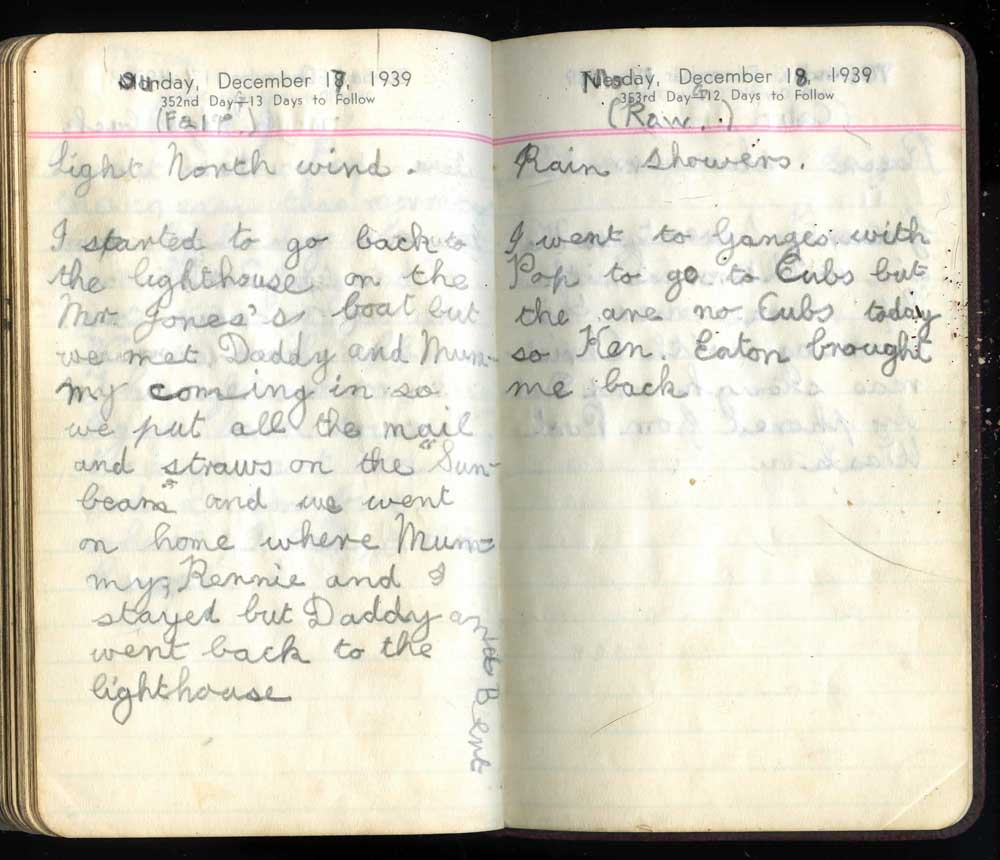 Sunday, December 17, 1939
352nd Day—13 Days to Follow
(Fair)
light North wind.
I started to go back to
the lighthouse on the
Mr. Jones's boat but
we met Daddy and Mum-
my comeing in so
we put all the mail
and straws on the "Sun-
beam" and we went
on home where Mum-
my, Rennie and I
stayed but Daddy and Bert
went back to the
lighthouse
Monday, December 18, 1939
353rd Day—12 Days to Follow
(Raw.)
Rain showers.
I went to Ganges with
Pop to go to Cubs but
the are no Cubs today
so Ken. Eaton brought
me back